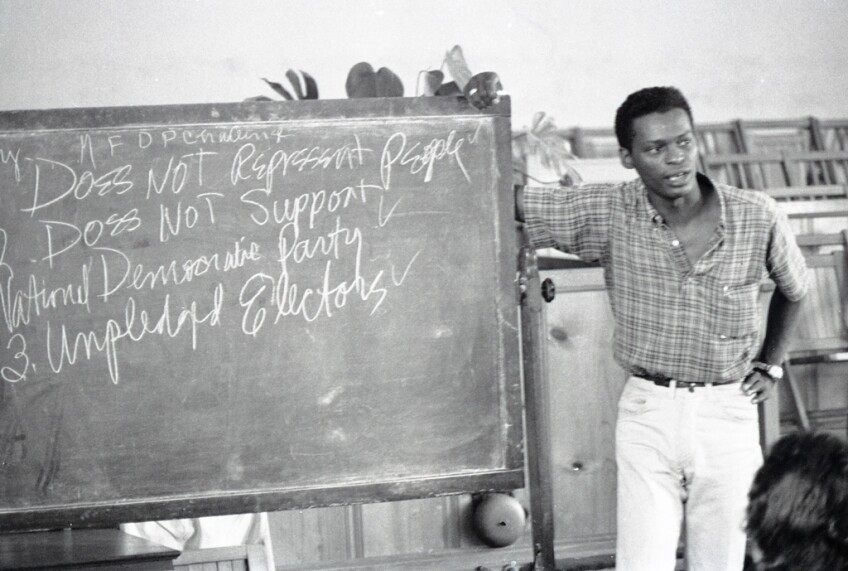 M F D P Challenge
Does Not Represent People ✓
2. Does Not Support
National Democratic Party ✓
3. Unpledged Electors ✓